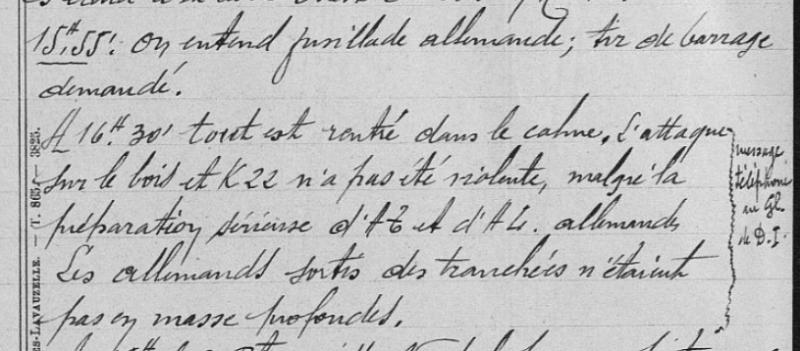 15.H 55'. On entend fusillade allemande; tir de barrage
demandé.
A 16.H 30' tout est rentré dans le calme. L'attaque
sur le bois et K 22 n'a pas été violente, malgré la
préparation sérieuse d'AT et d'AL. allemands
Les allemands sortis des tranchées n'étaient
pas en masse profondes.
message
téléphoné
au Gl.
de D.I.
ES-LAVAUZELLE. — (T. 865) — 3825.